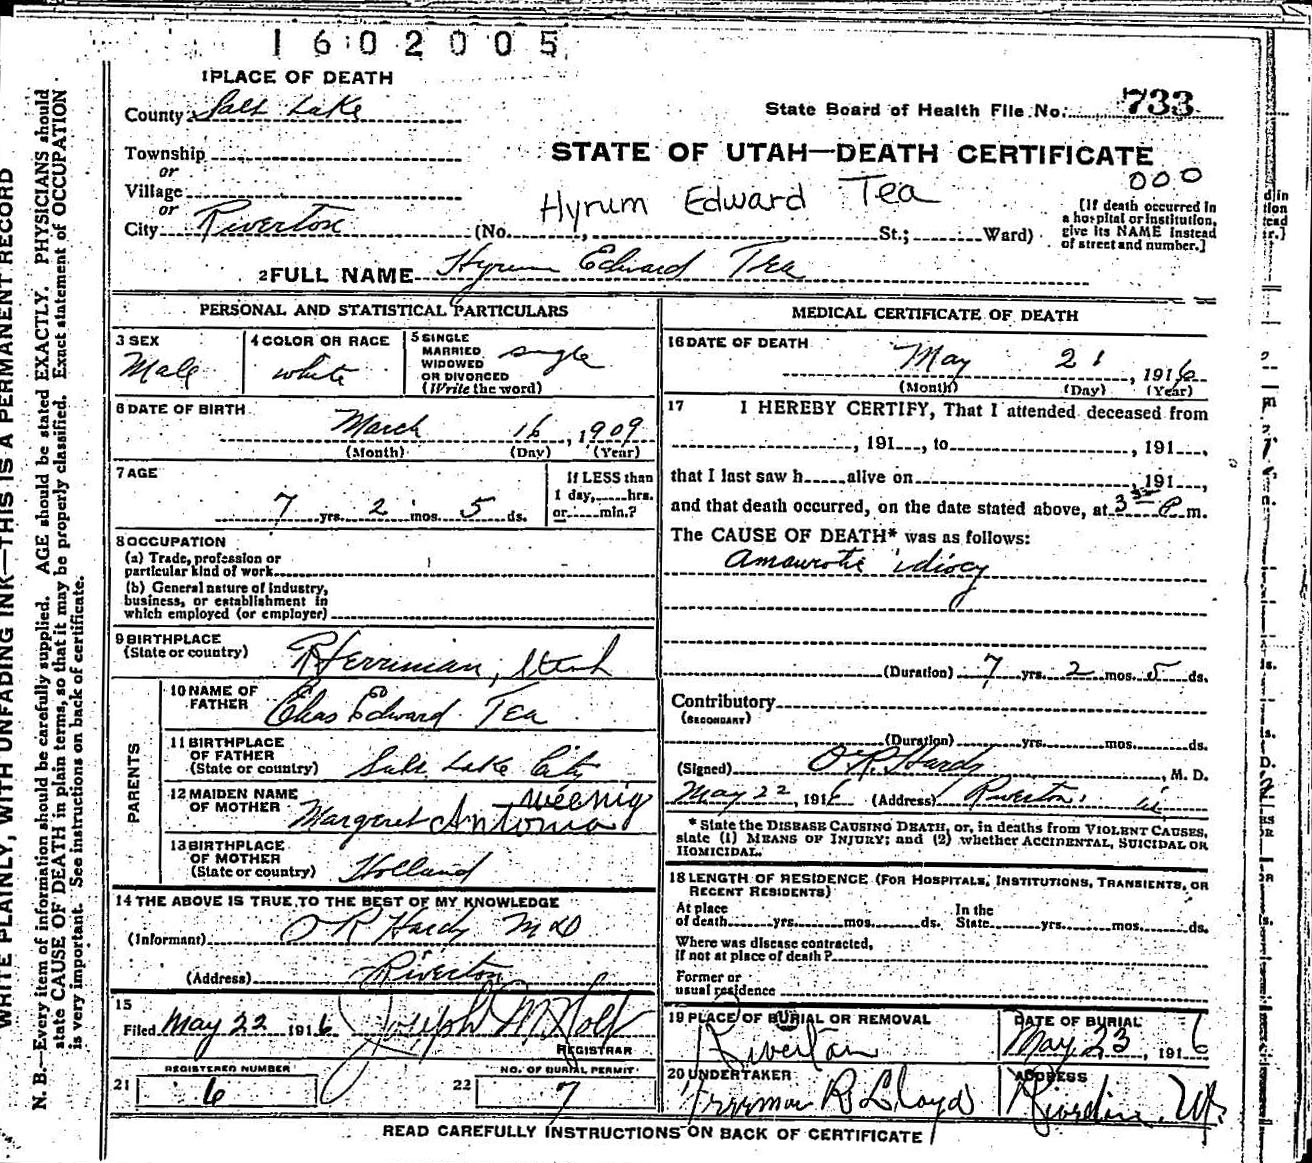 1602005
1 PLACE OF DEATH
County Salt Lake
State Board of Health File No. 733
Township
or
Village
or
City Riverton (No. , St.; Ward)
STATE OF UTAH—DEATH CERTIFICATE
000
Hyrum Edward Tea
[If death occurred in
a hospital or institution,
give its NAME instead
of street and number.]
2 FULL NAME Hyrum Edward Tea
PERSONAL AND STATISTICAL PARTICULARS
3 SEX
Male
4 COLOR OR RACE
white
5 SINGLE
MARRIED
WIDOWED
OR DIVORCED
(Write the word)
single
6 DATE OF BIRTH
March 16, 1909
(Month) (Day) (Year)
7 AGE
7 yrs. 2 mos. 5 ds.
If LESS than
1 day, hrs.
or min.?
8 OCCUPATION
(a) Trade, profession or
particular kind of work
(b) General nature of industry,
business, or establishment in
which employed (or employer)
9 BIRTHPLACE
(State or country)
Herriman, Utah
PARENTS
10 NAME OF
FATHER
Chas Edward Tea
11 BIRTHPLACE
OF FATHER
(State or country)
Salt Lake City
12 MAIDEN NAME
OF MOTHER
Margaret Antonia Weenig
13 BIRTHPLACE
OF MOTHER
(State or country)
Holland
14 THE ABOVE IS TRUE TO THE BEST OF MY KNOWLEDGE
(Informant) O R Hardy MD
(Address) Riverton
15
Filed May 22 1916 Joseph M Holt
REGISTRAR
REGISTERED NUMBER
21 6
NO. OF BURIAL PERMIT
22 7
MEDICAL CERTIFICATE OF DEATH
16 DATE OF DEATH
May 21, 1916
(Month) (Day) (Year)
17 I HEREBY CERTIFY, That I attended deceased from
, 191 , to , 191 ,
that I last saw h alive on , 191 ,
and that death occurred, on the date stated above, at 3 P m.
The CAUSE OF DEATH* was as follows:
Amaurotic idiocy
(Duration) 7 yrs. 2 mos. 5 ds.
Contributory
(SECONDARY)
(Duration) yrs. mos. ds.
(Signed) O R Hardy, M. D.
May 22, 1916 (Address) Riverton
* State the DISEASE CAUSING DEATH, or, in deaths from VIOLENT CAUSES,
state (1) MEANS OF INJURY; and (2) whether ACCIDENTAL, SUICIDAL OR
HOMICIDAL.
18 LENGTH OF RESIDENCE (FOR HOSPITALS, INSTITUTIONS, TRANSIENTS, OR
RECENT RESIDENTS)
At place
of death yrs. mos. ds.
In the
State yrs. mos. ds.
Where was disease contracted,
If not at place of death?
Former or
usual residence
19 PLACE OF BURIAL OR REMOVAL
Riverton
DATE OF BURIAL
May 23, 1916
20 UNDERTAKER
Freeman R Lloyd
ADDRESS
READ CAREFULLY INSTRUCTIONS ON BACK OF CERTIFICATE
WRITE PLAINLY, WITH UNFADING INK—THIS IS A PERMANENT RECORD
N. B.—Every item of information should be carefully supplied. AGE should be stated EXACTLY. PHYSICIANS should
state CAUSE OF DEATH in plain terms, so that it may be properly classified. Exact statement of OCCUPATION
is very important. See instructions on back of certificate.